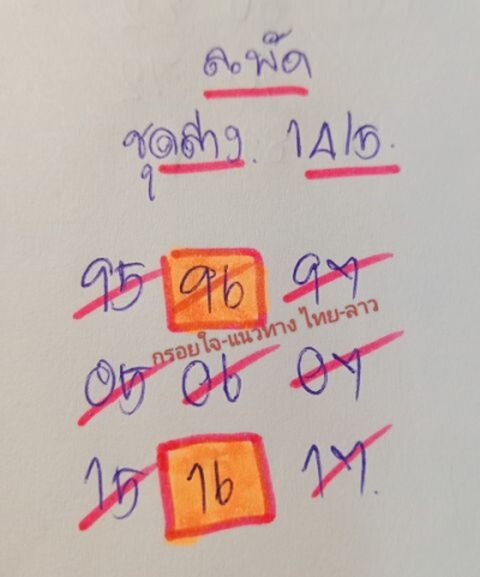 ชุดล่าง.
95 96 97
กรอยใจ-แนวทาง ไทย-ลาว
05 06 07
15 16 17.